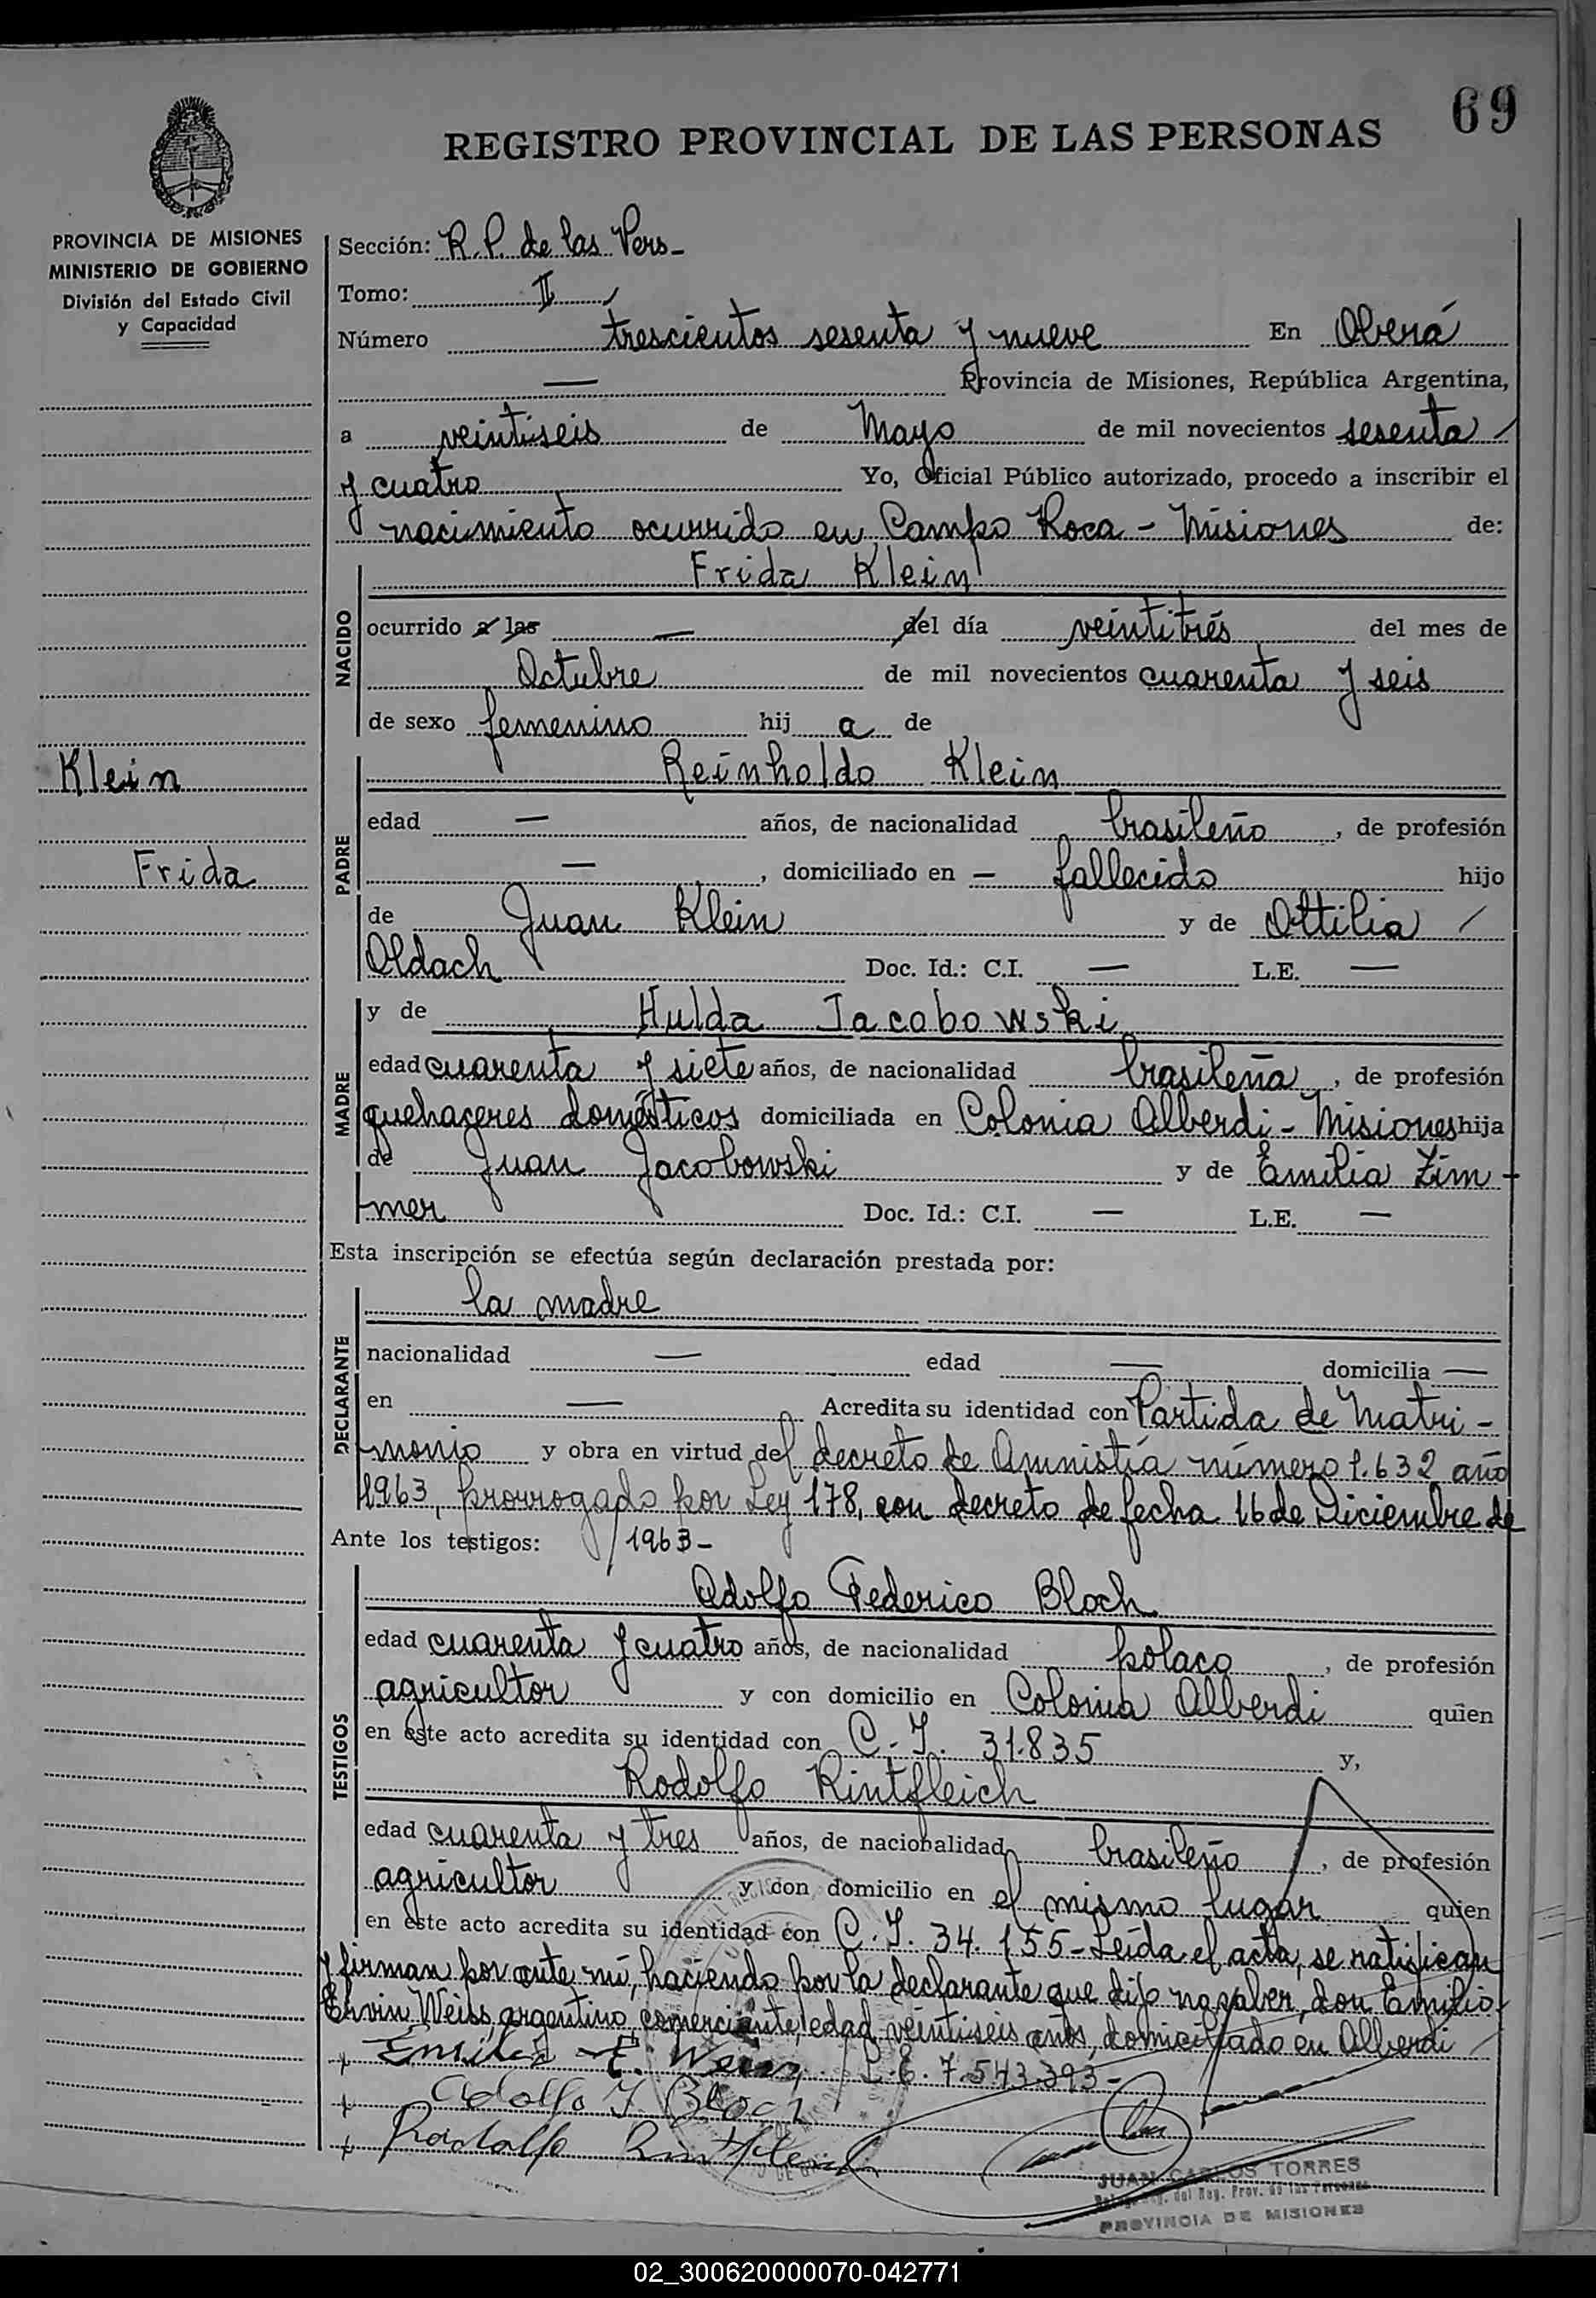 69
REGISTRO PROVINCIAL DE LAS PERSONAS
PROVINCIA DE MISIONES
MINISTERIO DE GOBIERNO
División del Estado Civil
y Capacidad
Sección: R.P. de las Pers-
Tomo: II
Número trescientos sesenta y nueve En Oberá
— Provincia de Misiones, República Argentina,
a veintiseis de Mayo de mil novecientos sesenta
y cuatro Yo, Oficial Público autorizado, procedo a inscribir el
nacimiento ocurrido en Campo Roca - Misiones de:
NACIDO
Frida Klein
ocurrido a las — del día veintitrés del mes de
Octubre de mil novecientos cuarenta y seis
de sexo femenino hij a de
Klein
Frida
PADRE
Reinholdo Klein
edad — años, de nacionalidad brasileño, de profesión
—, domiciliado en — fallecido hijo
de Juan Klein y de Ottilia
Oldach Doc. Id.: C.I. — L.E. —
MADRE
y de Hulda Jacobowski
edad cuarenta y siete años, de nacionalidad brasileña, de profesión
quehaceres domésticos domiciliada en Colonia Alberdi - Misiones hija
de Juan Jacobowski y de Emilia Zim-
mer Doc. Id.: C.I. — L.E. —
Esta inscripción se efectúa según declaración prestada por:
DECLARANTE
la madre
nacionalidad — edad — domicilia —
en — Acredita su identidad con Partida de Matri-
monio y obra en virtud del decreto de Amnistía número 1.632 año
1963, prorrogado por Ley 178, con decreto de fecha 16 de Diciembre de
Ante los testigos: /1963-
TESTIGOS
Adolfo Federico Bloch
edad cuarenta y cuatro años, de nacionalidad polaco, de profesión
agricultor y con domicilio en Colonia Alberdi quien
en este acto acredita su identidad con C.I. 31.835 y,
Rodolfo Rintfleich
edad cuarenta y tres años, de nacionalidad brasileño, de profesión
agricultor y con domicilio en el mismo lugar quien
en este acto acredita su identidad con C.I. 34.155- Leída el acta, se ratifican
y firman por ante mí, haciendo por la declarante que dijo no saber, don Emilio
Ervin Weiss, argentino, comerciante, edad veintiseis años, domiciliado en Alberdi
+ Emilio E. Weiss L.E. 7.543.393-
+ Adolfo F. Bloch
+ Rodolfo Rintfleich
JUAN CARLOS TORRES
del Reg. Prov. de las Personas
PROVINCIA DE MISIONES
02_300620000070-042771